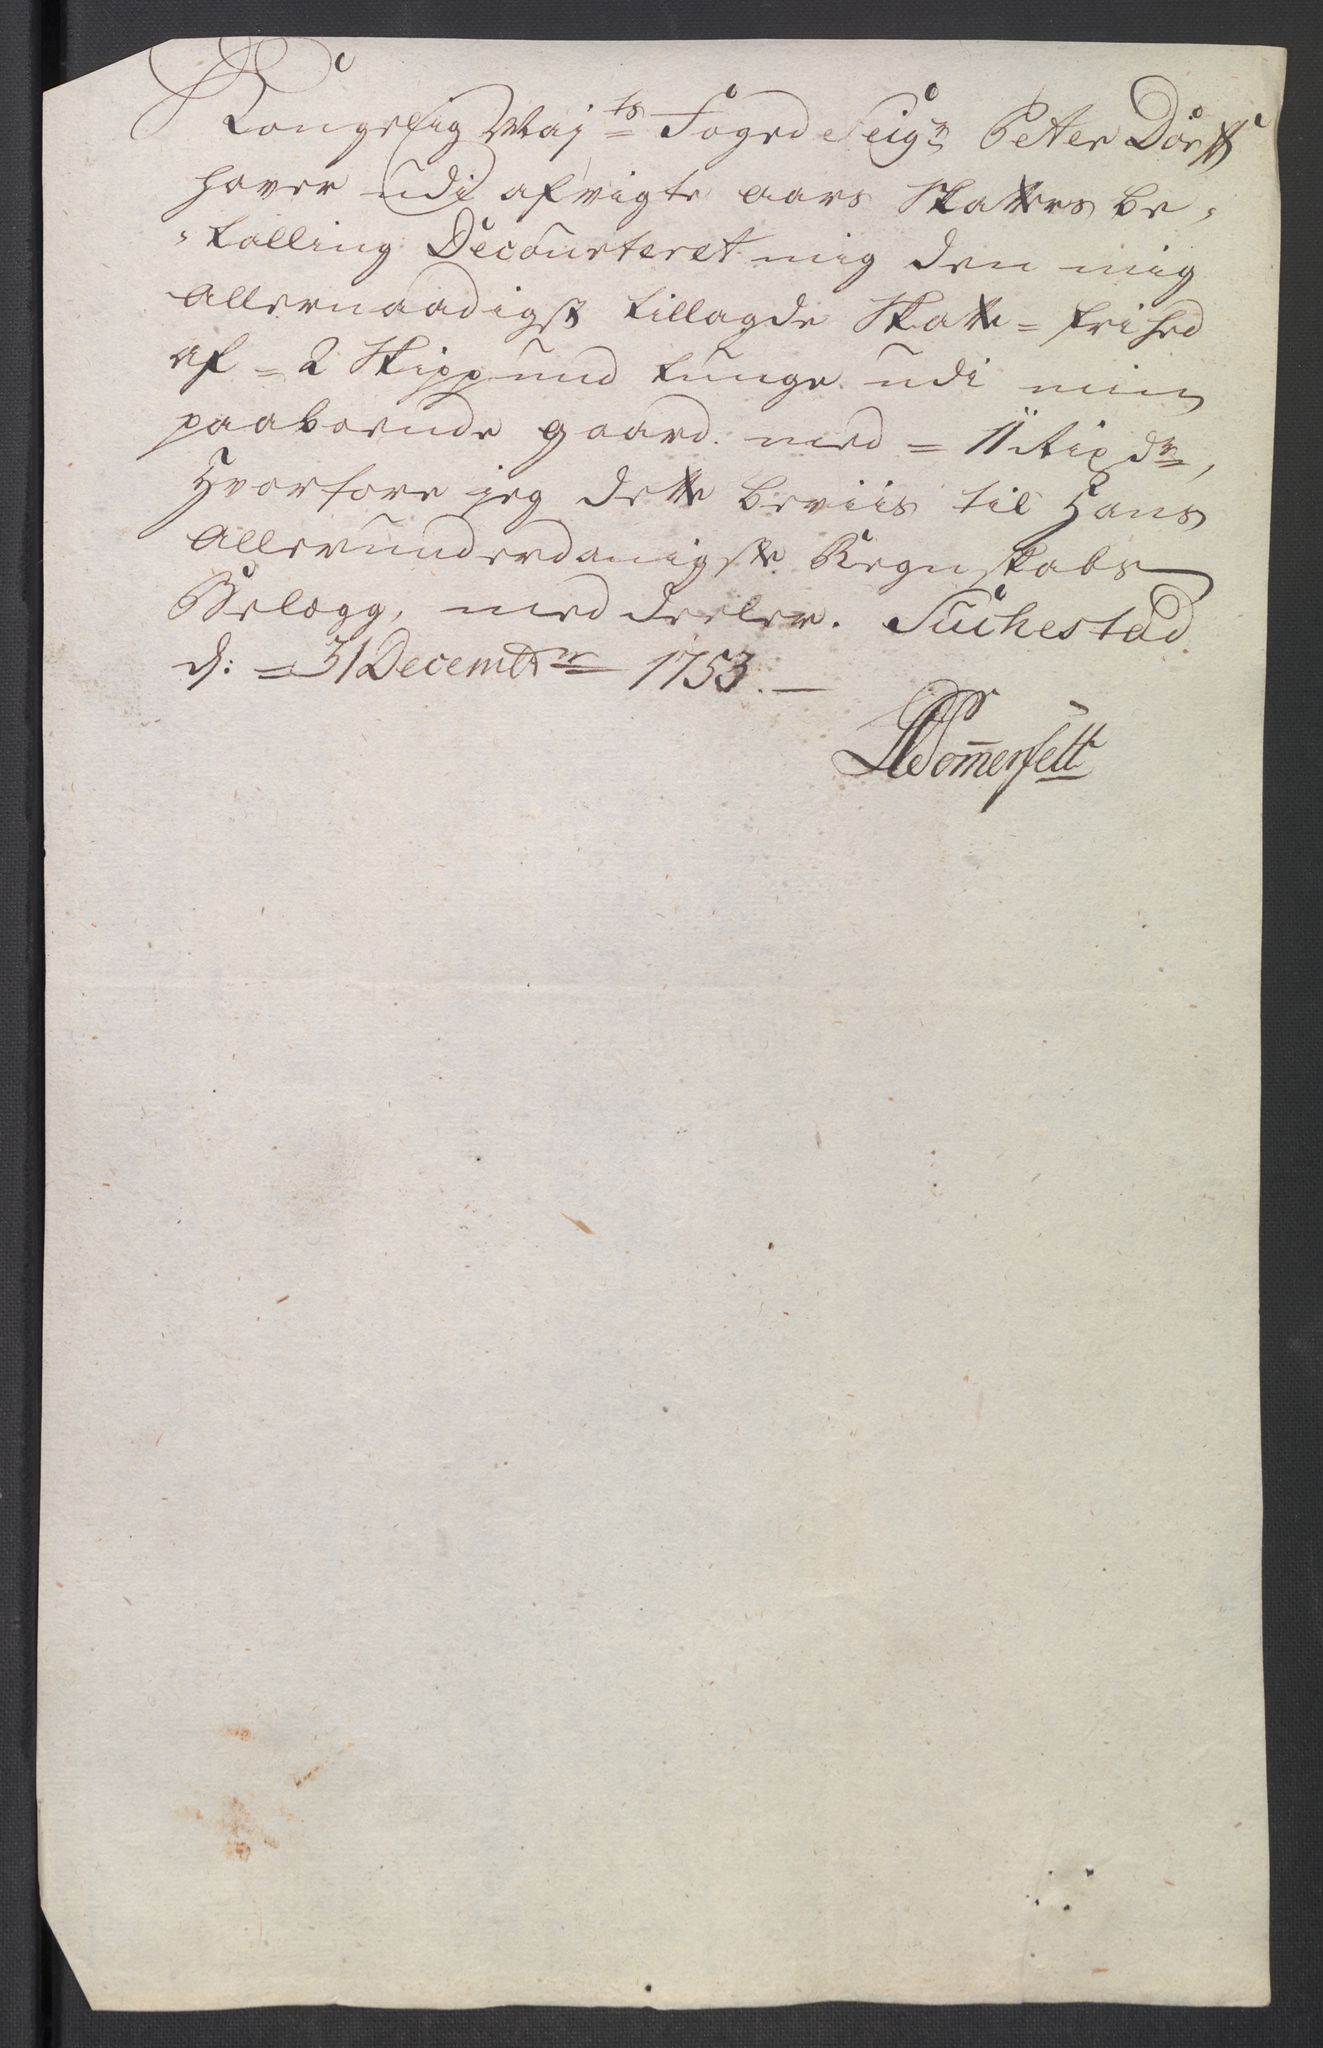 Kongelig Maj:ts Foged Seig:r Peter Dorff
haver udi afvigte aars Skatters be-
-talling Decourteret mig den mig
allernaadigst tillagde Skatte=frihed
af = 2 Skippund tunge udi min
paaboende gaard. med = 11 Rixd:r,
Hvorfore jeg dette beviis til Hans
allerunderdanigste Regnskabs
Belægg, meddeeler. Suchestad
d: = 31 Decembr: 1753. —
Sommerfeltt